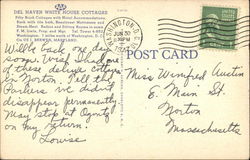 AAA
DEL HAVEN WHITE HOUSE COTTAGES
Fifty Brick Cottages with Hotel Accommodations.
Each with tile bath, Beautyrest Mattresses and
Steam Heat. Radios and Sitting Rooms in some.
F. M. Iager, Prop. and Mgr. Tel. Tower
Washington. 7 miles north of Washington, D. C.
On US 1 BERWYN, MARYLAND.
WASHINGTON, D.C.
JUN 30
PM
POST CARD
Will be back one day
soon. Wish I had one
of these deluxe cottages
in Norton. Tell the
Parkers we didn't
disappear permanently
May stop at
on my return.
Louise
Miss Winifred Austin
E. Main St.
Norton
Massachusetts